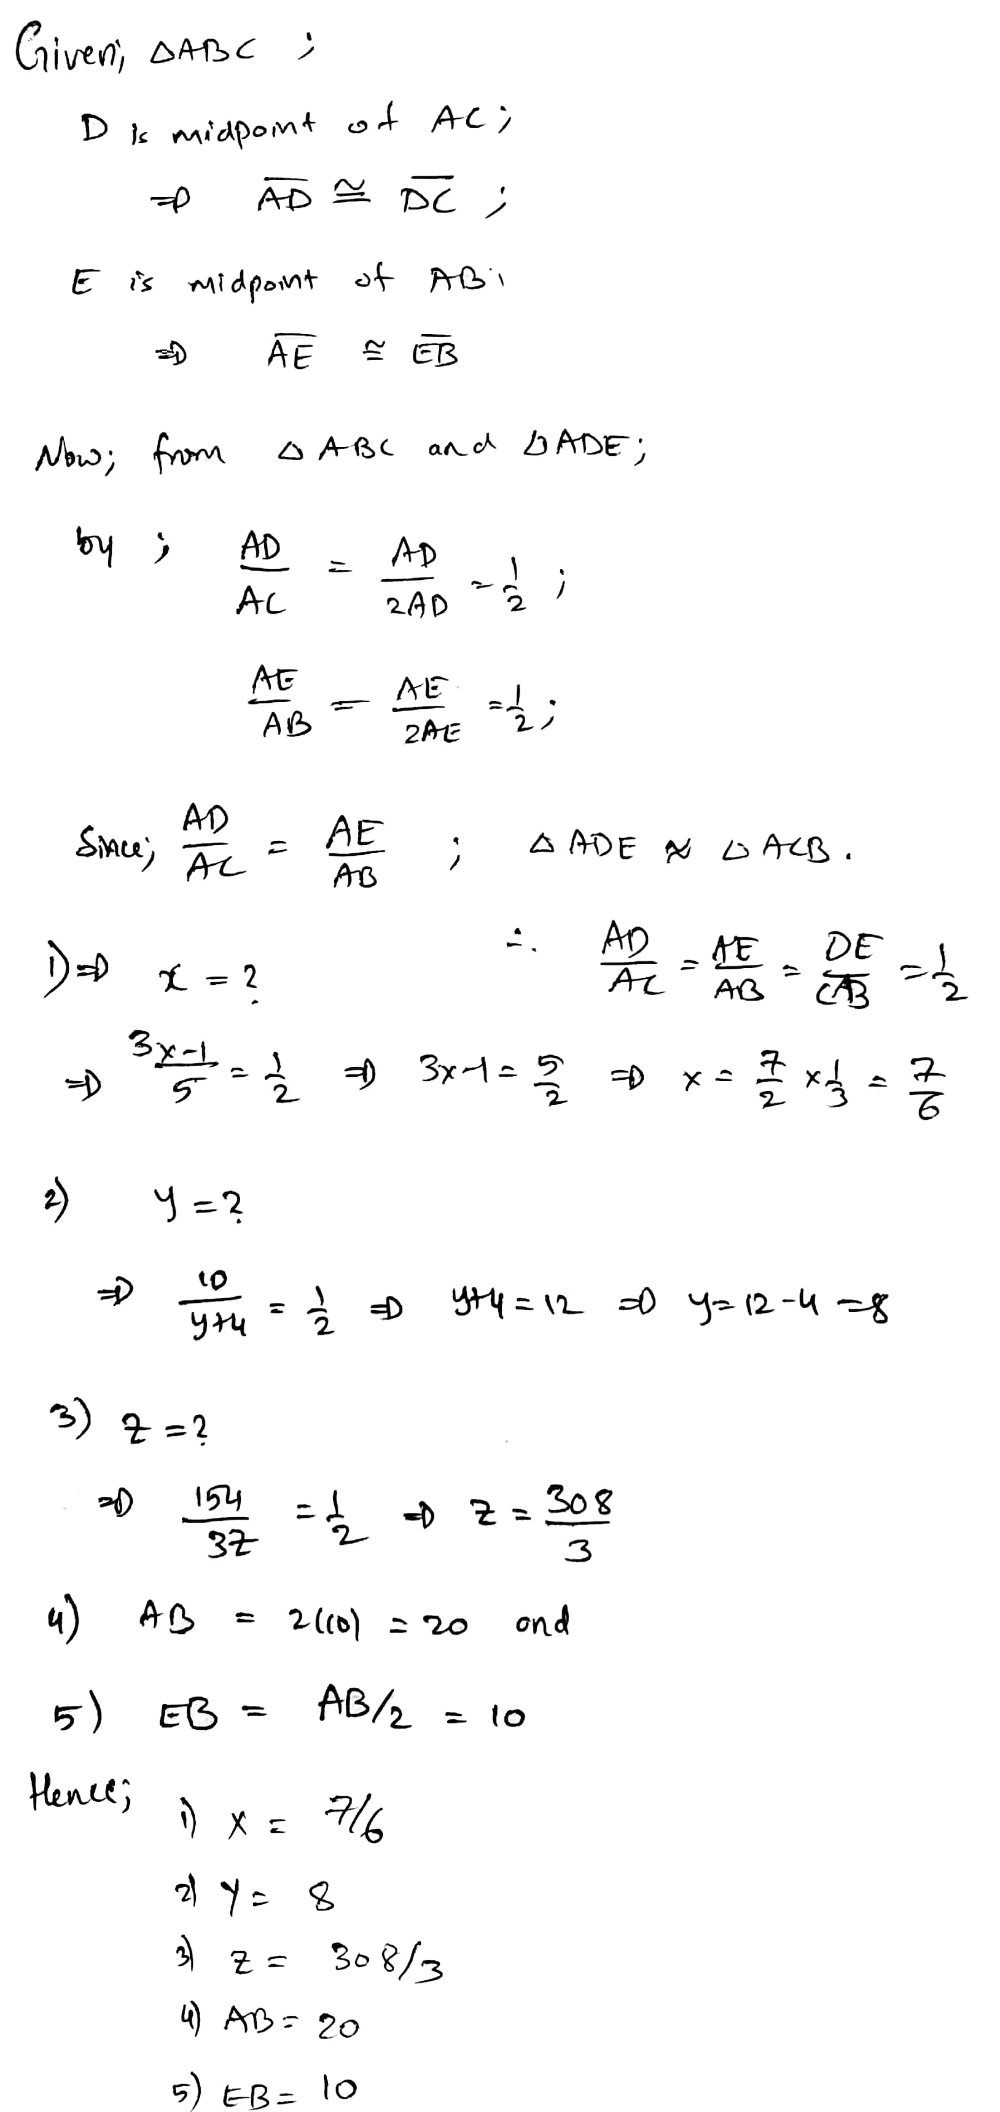 Given; △ABC ;
D is midpoint of AC;
⇒ A̅D̅ ≅ D̅C̅ ;
E is midpoint of AB;
⇒ A̅E̅ ≅ E̅B̅
Now; from △ABC and △ADE;
by ; AD/AC = AD/2AD = 1/2 ;
AE/AB = AE/2AE = 1/2 ;
Since; AD/AC = AE/AB ; △ADE ~ △ACB.
∴ AD/AC = AE/AB = DE/CB = 1/2
1) ⇒ x = ?
⇒ 3x-1/5 = 1/2 ⇒ 3x-1 = 5/2 ⇒ x = 7/2 × 1/3 = 7/6
2) y = ?
⇒ 10/y+4 = 1/2 ⇒ y+4 = 12 ⇒ y = 12-4 = 8
3) z = ?
⇒ 154/3z = 1/2 ⇒ z = 308/3
4) AB = 2(10) = 20 and
5) EB = AB/2 = 10
Hence;
1) x = 7/6
2) y = 8
3) z = 308/3
4) AB = 20
5) EB = 10